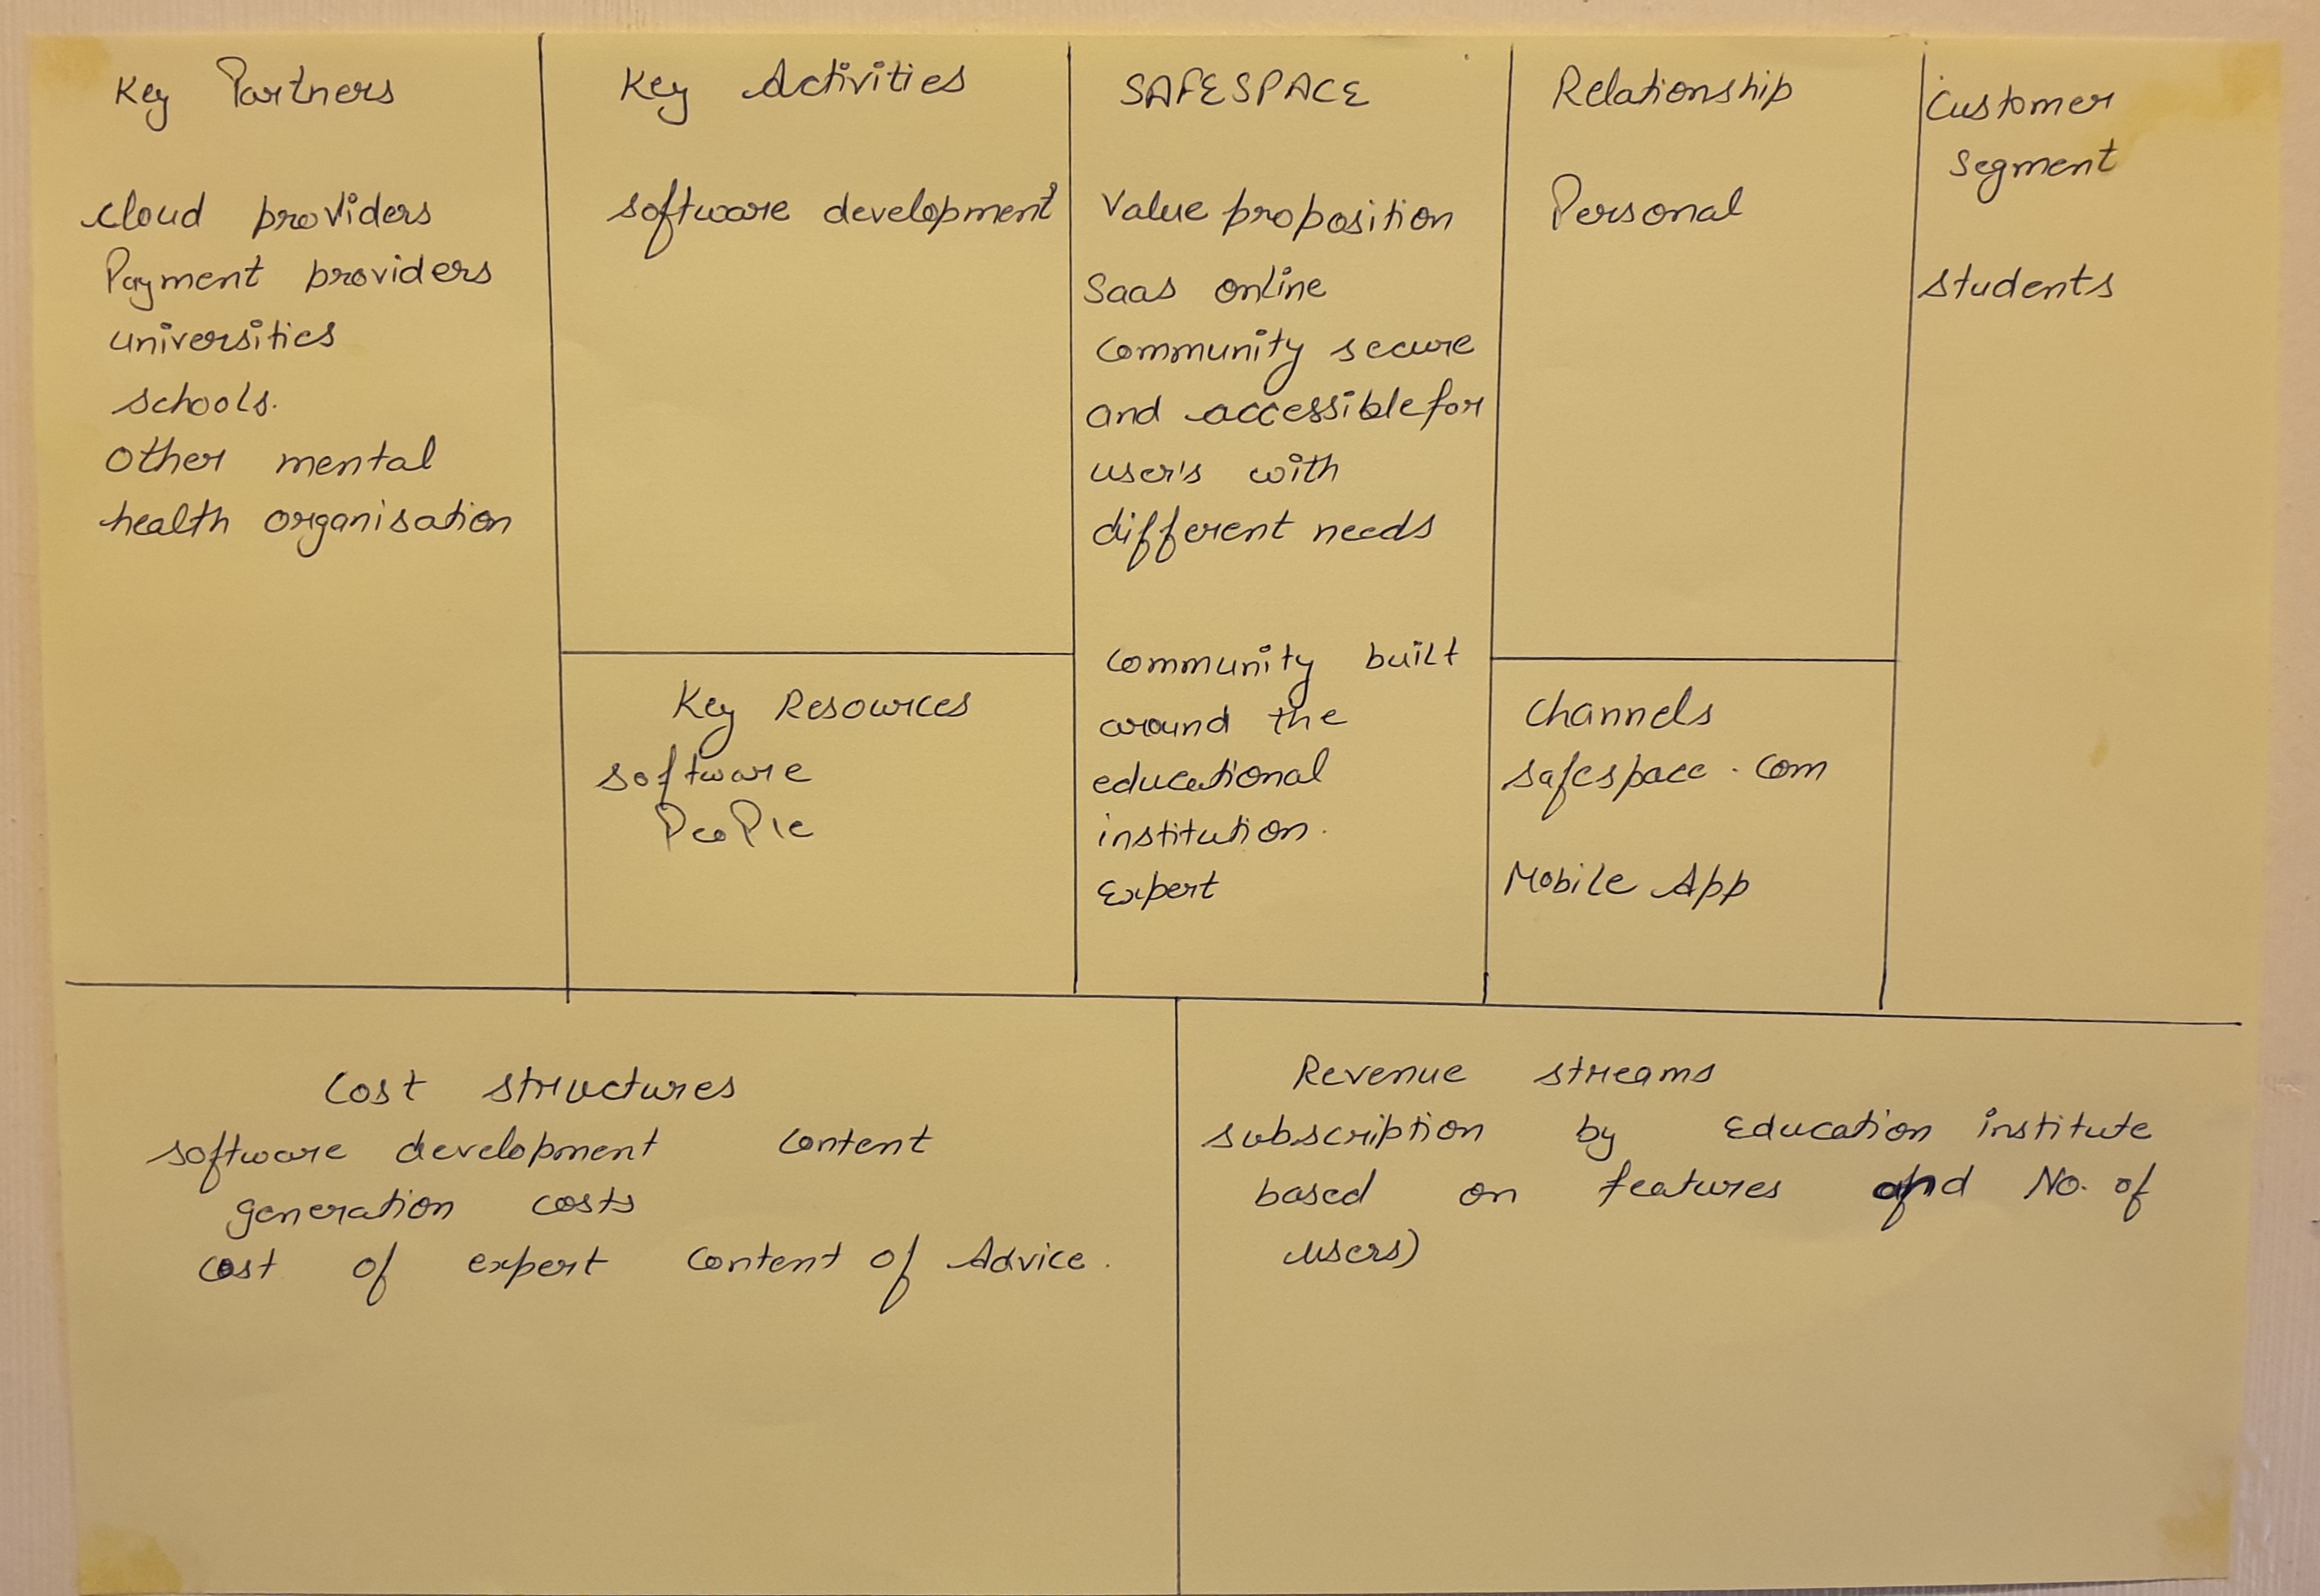 Key Partners
cloud providers
Payment providers
universities
schools.
other mental
health organisation
Key Activities
software development
Key Resources
software
PeoPle
SAFESPACE
Value proposition
Saas online
community secure
and accessible for
user's with
different needs
community built
around the
educational
institution.
Expert
Relationship
Personal
Channels
safespace.com
Mobile App
Customer
segment
students
Cost structures
software development content
generation costs
cost of expert content of Advice.
Revenue streams
subscription by Education institute
based on features and No. of
users)